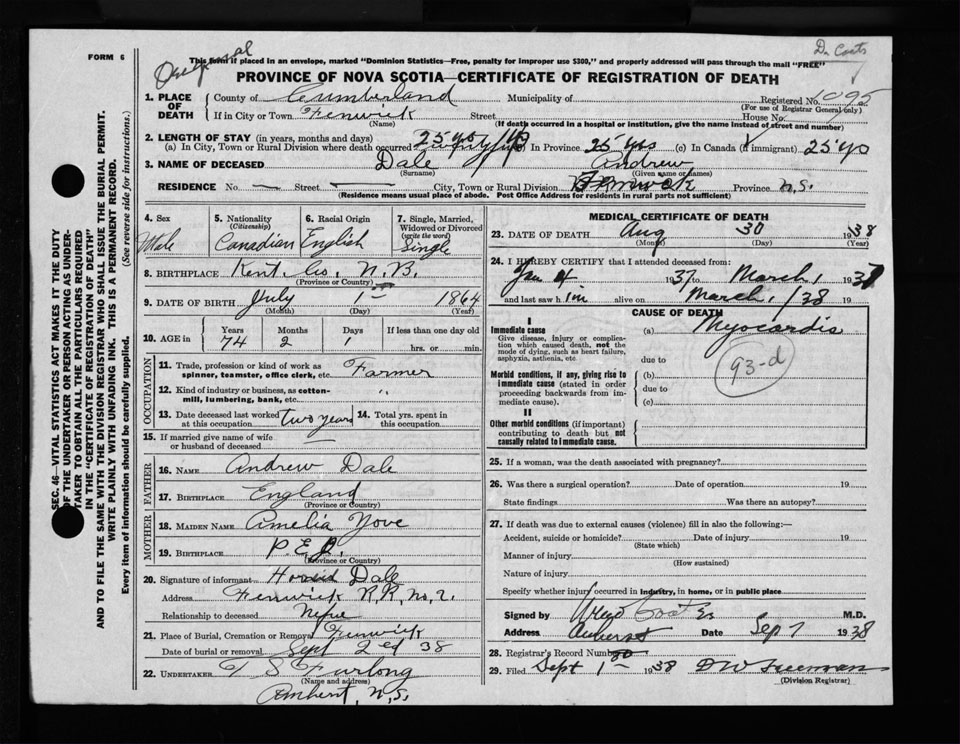 FORM 6
Dr Coats
This form if placed in an envelope, marked "Dominion Statistics—Free, penalty for improper use $300," and properly addressed will pass through the mail "FREE"
PROVINCE OF NOVA SCOTIA—CERTIFICATE OF REGISTRATION OF DEATH
1. PLACE OF DEATH County of Cumberland Municipality of Registered No. 1095
(For use of Registrar General only)
If in City or Town Fenwick Street House No.
(Name) (If death occurred in a hospital or institution, give the name instead of street and number)
2. LENGTH OF STAY (in years, months and days)
(a) In City, Town or Rural Division where death occurred 25 yrs (b) In Province 25 yrs (c) In Canada (if immigrant) 25 yrs
3. NAME OF DECEASED Dale Andrew
(Surname) (Given name or names)
RESIDENCE No. — Street — City, Town or Rural Division Fenwick Province N.S.
(Residence means usual place of abode. Post Office Address for residents in rural parts not sufficient)
SEC. 46—VITAL STATISTICS ACT MAKES IT THE DUTY
OF THE UNDERTAKER OR PERSON ACTING AS UNDER-
TAKER TO OBTAIN ALL THE PARTICULARS REQUIRED
IN THE "CERTIFICATE OF REGISTRATION OF DEATH"
AND TO FILE THE SAME WITH THE DIVISION REGISTRAR WHO SHALL ISSUE THE BURIAL PERMIT.
WRITE PLAINLY WITH UNFADING INK. THIS IS A PERMANENT RECORD.
Every item of information should be carefully supplied. (See reverse side for instructions.)
4. Sex Male
5. Nationality (Citizenship) Canadian
6. Racial Origin English
7. Single, Married, Widowed or Divorced (write the word) Single
8. BIRTHPLACE Kent Co. N.B.
(Province or Country)
9. DATE OF BIRTH July 1st 1864
(Month) (Day) (Year)
10. AGE in Years 74 Months 2 Days 1 If less than one day old hrs. or min.
OCCUPATION
11. Trade, profession or kind of work as spinner, teamster, office clerk, etc. Farmer
12. Kind of industry or business, as cotton-mill, lumbering, bank, etc. "
13. Date deceased last worked at this occupation two years 14. Total yrs. spent in this occupation
15. If married give name of wife or husband of deceased —
FATHER
16. NAME Andrew Dale
17. BIRTHPLACE England
(Province or Country)
MOTHER
18. MAIDEN NAME Amelia Yove
19. BIRTHPLACE P.E.I.
(Province or Country)
20. Signature of informant Dale
Address Fenwick R.R. No. 2.
Relationship to deceased Nefue
21. Place of Burial, Cremation or Removal Fenwick
Date of burial or removal Sept 2ed 38
22. UNDERTAKER T S Furlong
(Name and address)
Amherst, N.S.
MEDICAL CERTIFICATE OF DEATH
23. DATE OF DEATH Aug 30 1938
(Month) (Day) (Year)
24. I HEREBY CERTIFY that I attended deceased from:
Jan 4 1937 to March 1 1938
and last saw him alive on March 1/38 19
CAUSE OF DEATH
I
Immediate cause (a) Myocardis
Give disease, injury or complication which caused death, not the mode of dying, such as heart failure, asphyxia, asthenia, etc.
due to
93-d
Morbid conditions, if any, giving rise to immediate cause (stated in order proceeding backwards from immediate cause). (b)
due to
(c)
II
Other morbid conditions (if important) contributing to death but not causally related to immediate cause.
25. If a woman, was the death associated with pregnancy?
26. Was there a surgical operation? Date of operation 19
State findings Was there an autopsy?
27. If death was due to external causes (violence) fill in also the following:—
Accident, suicide or homicide? Date of injury 19
(State which)
Manner of injury
(How sustained)
Nature of injury
Specify whether injury occurred in industry, in home, or in public place
Signed by Coates M.D.
Address Amherst Date Sep 7 1938
28. Registrar's Record Number 30
29. Filed Sept 1st 1938 D W Freeman
(Division Registrar)